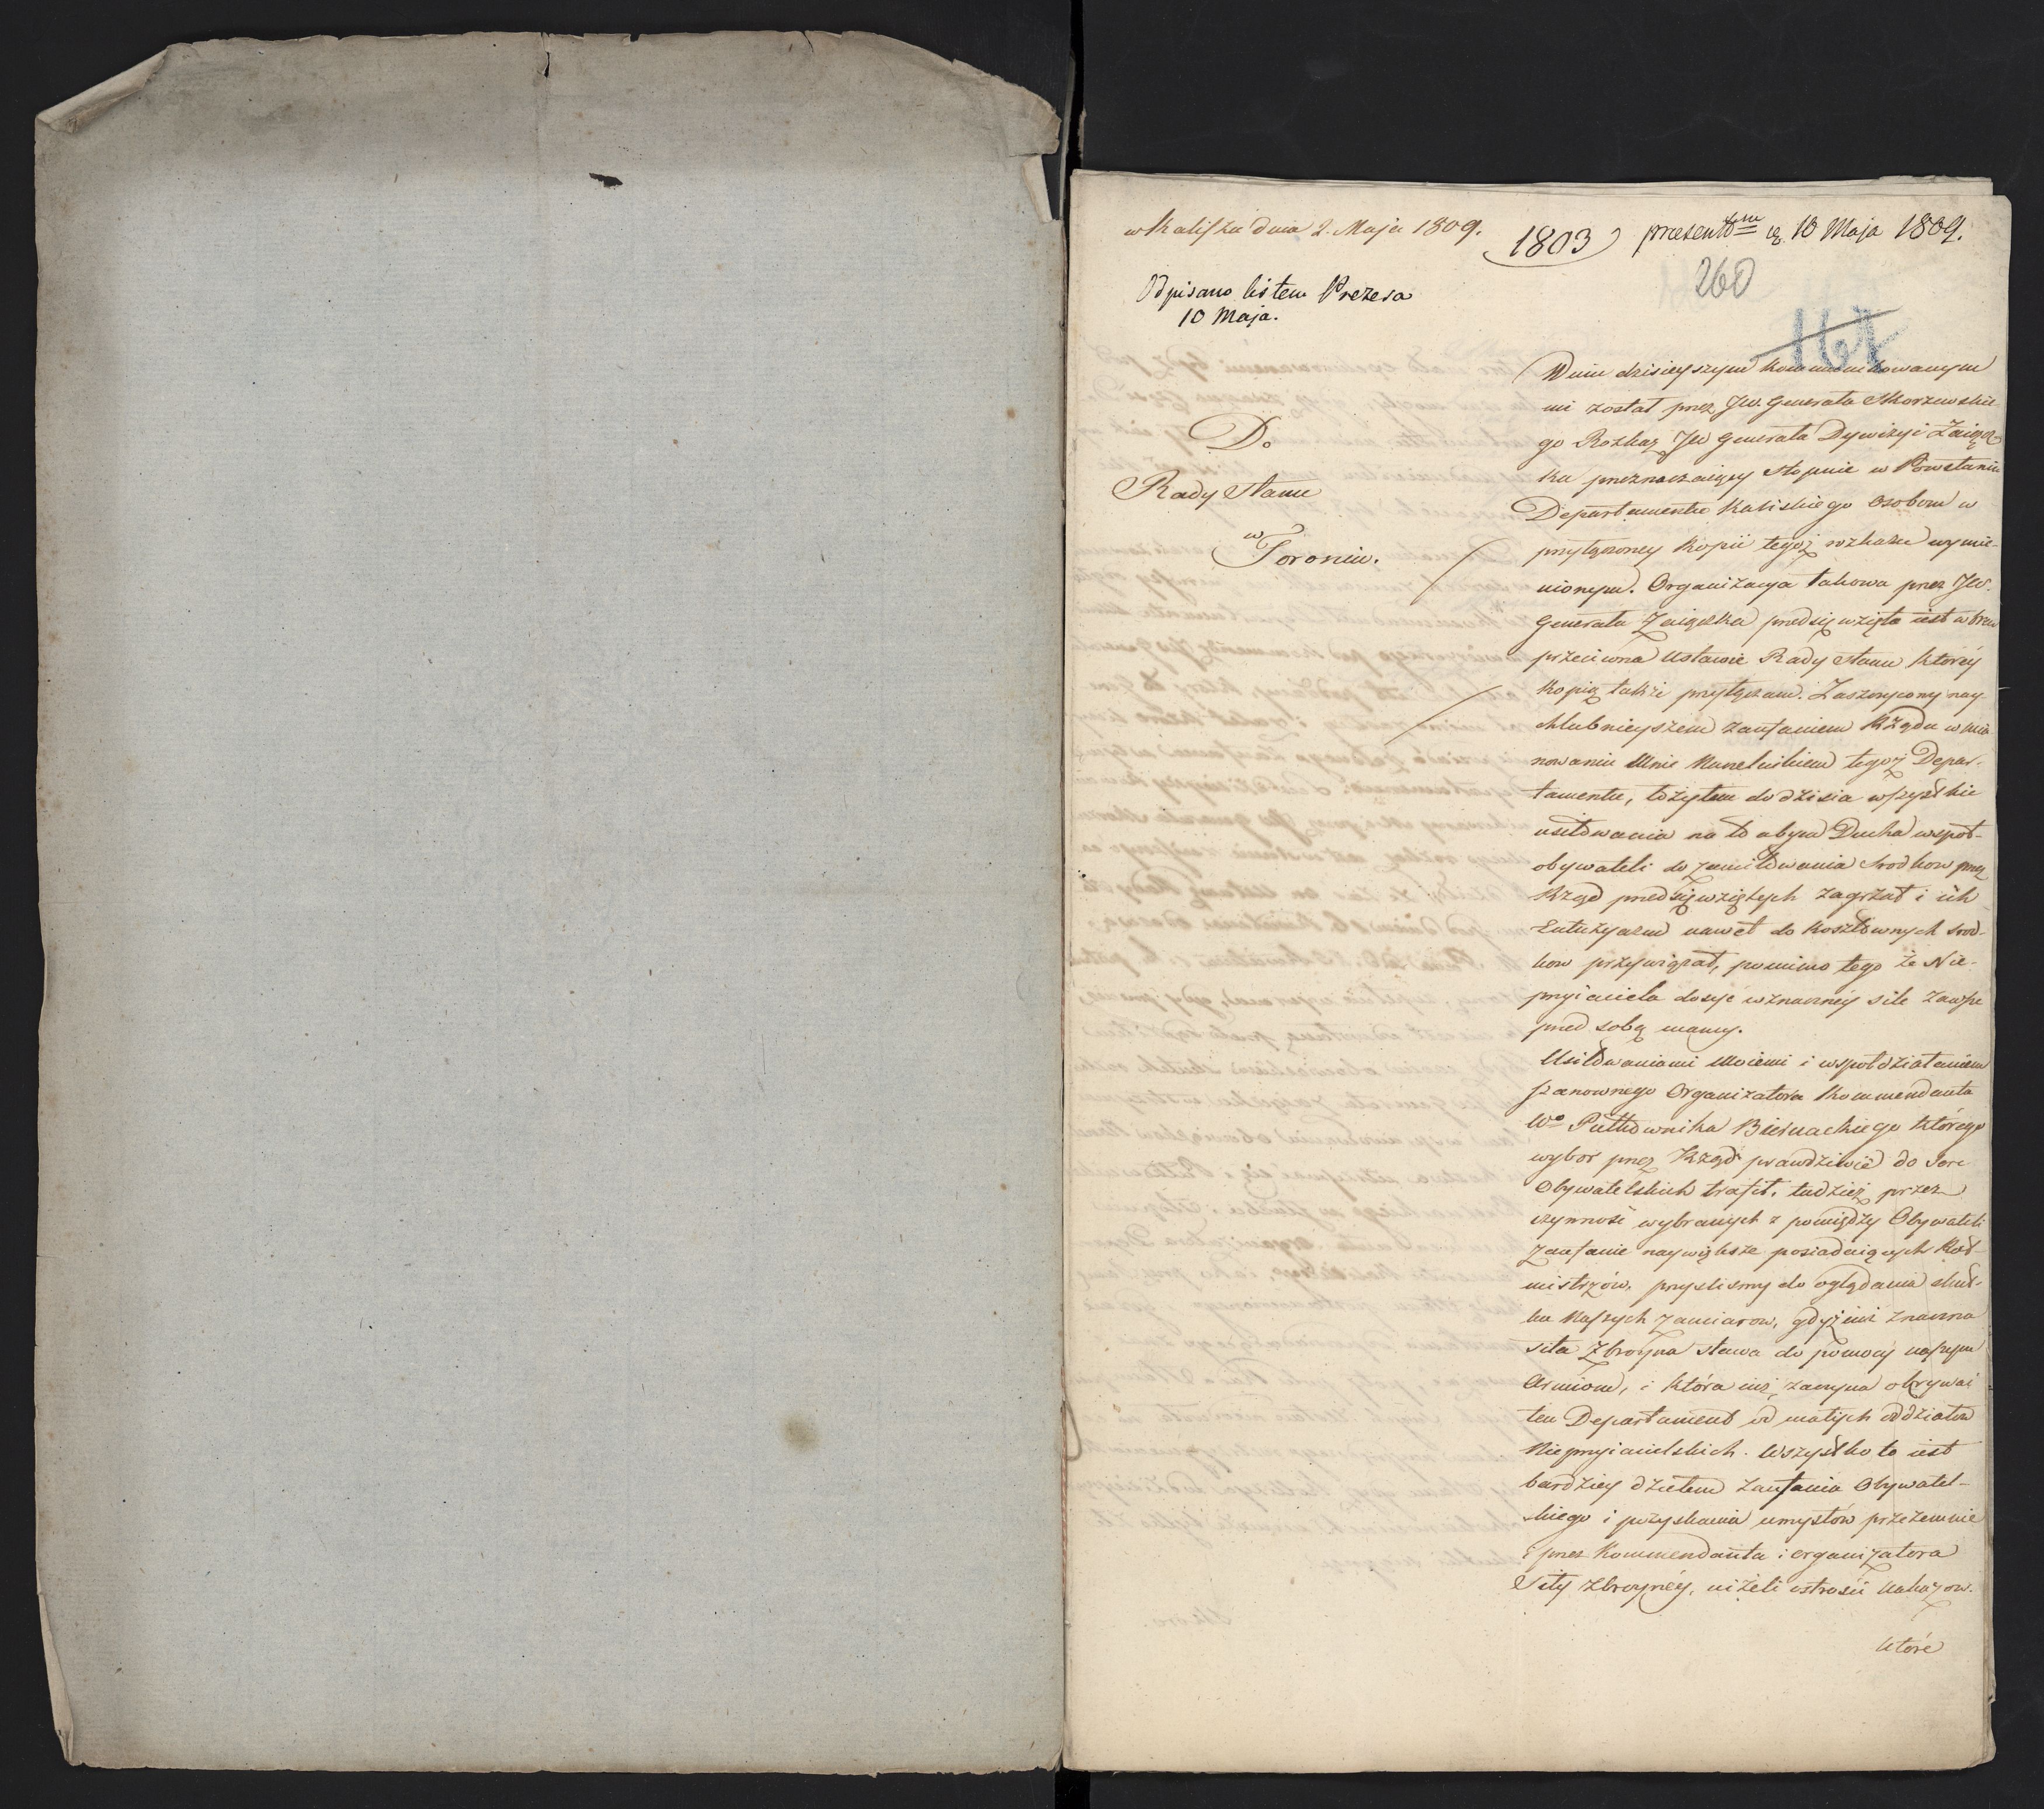 w Kaliszu dnia 2. Maja 1809.
1803
presentm 10 Maja 1809.
260
Odpisano listem Prezesa
10 Maja.
167
Do
Rady Stanu
w Toroniu.
W dniu dzisieyszym kommunikowanym
mi został przez JW. Generała Skorzewskie
go Rozkaz JW Generała Dywizyi Zaiącz
ka przeznaczaiący Stopnie w Powstaniu
Departamentu Kaliskiego osobom w
przyłączoney kopii tegoż rozkazu wymie-
nionym. Organizacya takowa przez JW.
Generała Zaiączka przedsięwzięta iest wbrew
przeciwna Ustawie Rady Stanu którey
kopią także przyłączam. Zaszczycony nay-
chlubnieyszem zaufaniem Rządu w mia
nowaniu Mnie Naczelnikiem tegoż Depar-
tamentu, łożyłem do dzisia wszystkie
usiłowania na to abym Ducha wspoł-
obywateli do zamiłowania Srodkow przez
Rząd przedsięwziętych zagrzał i ich
Entuzyazm nawet do kosztownych srod-
kow przywiązał, pomimo tego że Nie-
przyiaciela dosyć w znaczney sile zawsze
przed sobą mamy.
Usiłowaniami Moiemi i wspołdziałaniem
szanownego Organizatora Kommendanta
Wo Pułkownika Biernackiego którego
wybor przez Rząd prawdziwie do serc
Obywatelskich trafił, tudzież przez
czynność wybranych z pomiędzy Obywateli
zaufanie naywiększe posiadaiących Rot-
mistrzów, przyszlismy do oglądania skut-
ku Naszych zamiarow, gdyż iuż znaczna
siła Zbroyna stawa do pomocy naszym
Armiom, i która iuż zaczyna okrywać
ten Departament od małych oddziałow
Nieprzyiacielskich. Wszystko to iest
bardziey dziełem zaufania Obywatel-
skiego i pozyskania umysłów przezemnie
i przez Kommendanta i organizatora
Siły zbroyney, niżeli ostrości Nakazow.
które